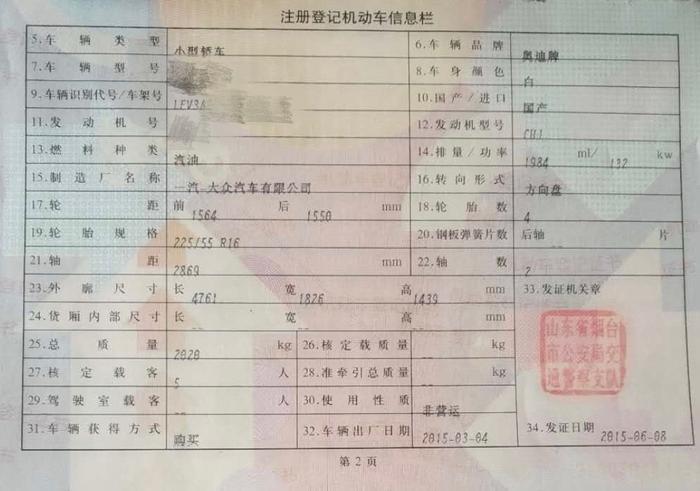 注册登记机动车信息栏
5.车辆类型 小型轿车 6.车辆品牌 奥迪牌
7.车辆型号 8.车身颜色 白
9.车辆识别代号/车架号 LFV3A 10.国产/进口 国产
11.发动机号 12.发动机型号 CHJ
13.燃料种类 汽油 14.排量/功率 1984 ml/ 132 kw
15.制造厂名称 一汽-大众汽车有限公司 16.转向形式 方向盘
17.轮距 前 1564 后 1550 mm 18.轮胎数 4
19.轮胎规格 225/55 R16 20.钢板弹簧片数 后轴 -- 片
21.轴距 2869 mm 22.轴数 2
23.外廓尺寸 长 4761 宽 1826 高 1439 mm 33.发证机关章
24.货厢内部尺寸 长 -- 宽 -- 高 -- mm
山东省烟台
市公安局交
通警察支队
25.总质量 2020 kg 26.核定载质量 -- kg
27.核定载客 5 人 28.准牵引总质量 -- kg
29.驾驶室载客 -- 人 30.使用性质 非营运
31.车辆获得方式 购买 32.车辆出厂日期 2015-03-04 34.发证日期 2015-06-08
第2页